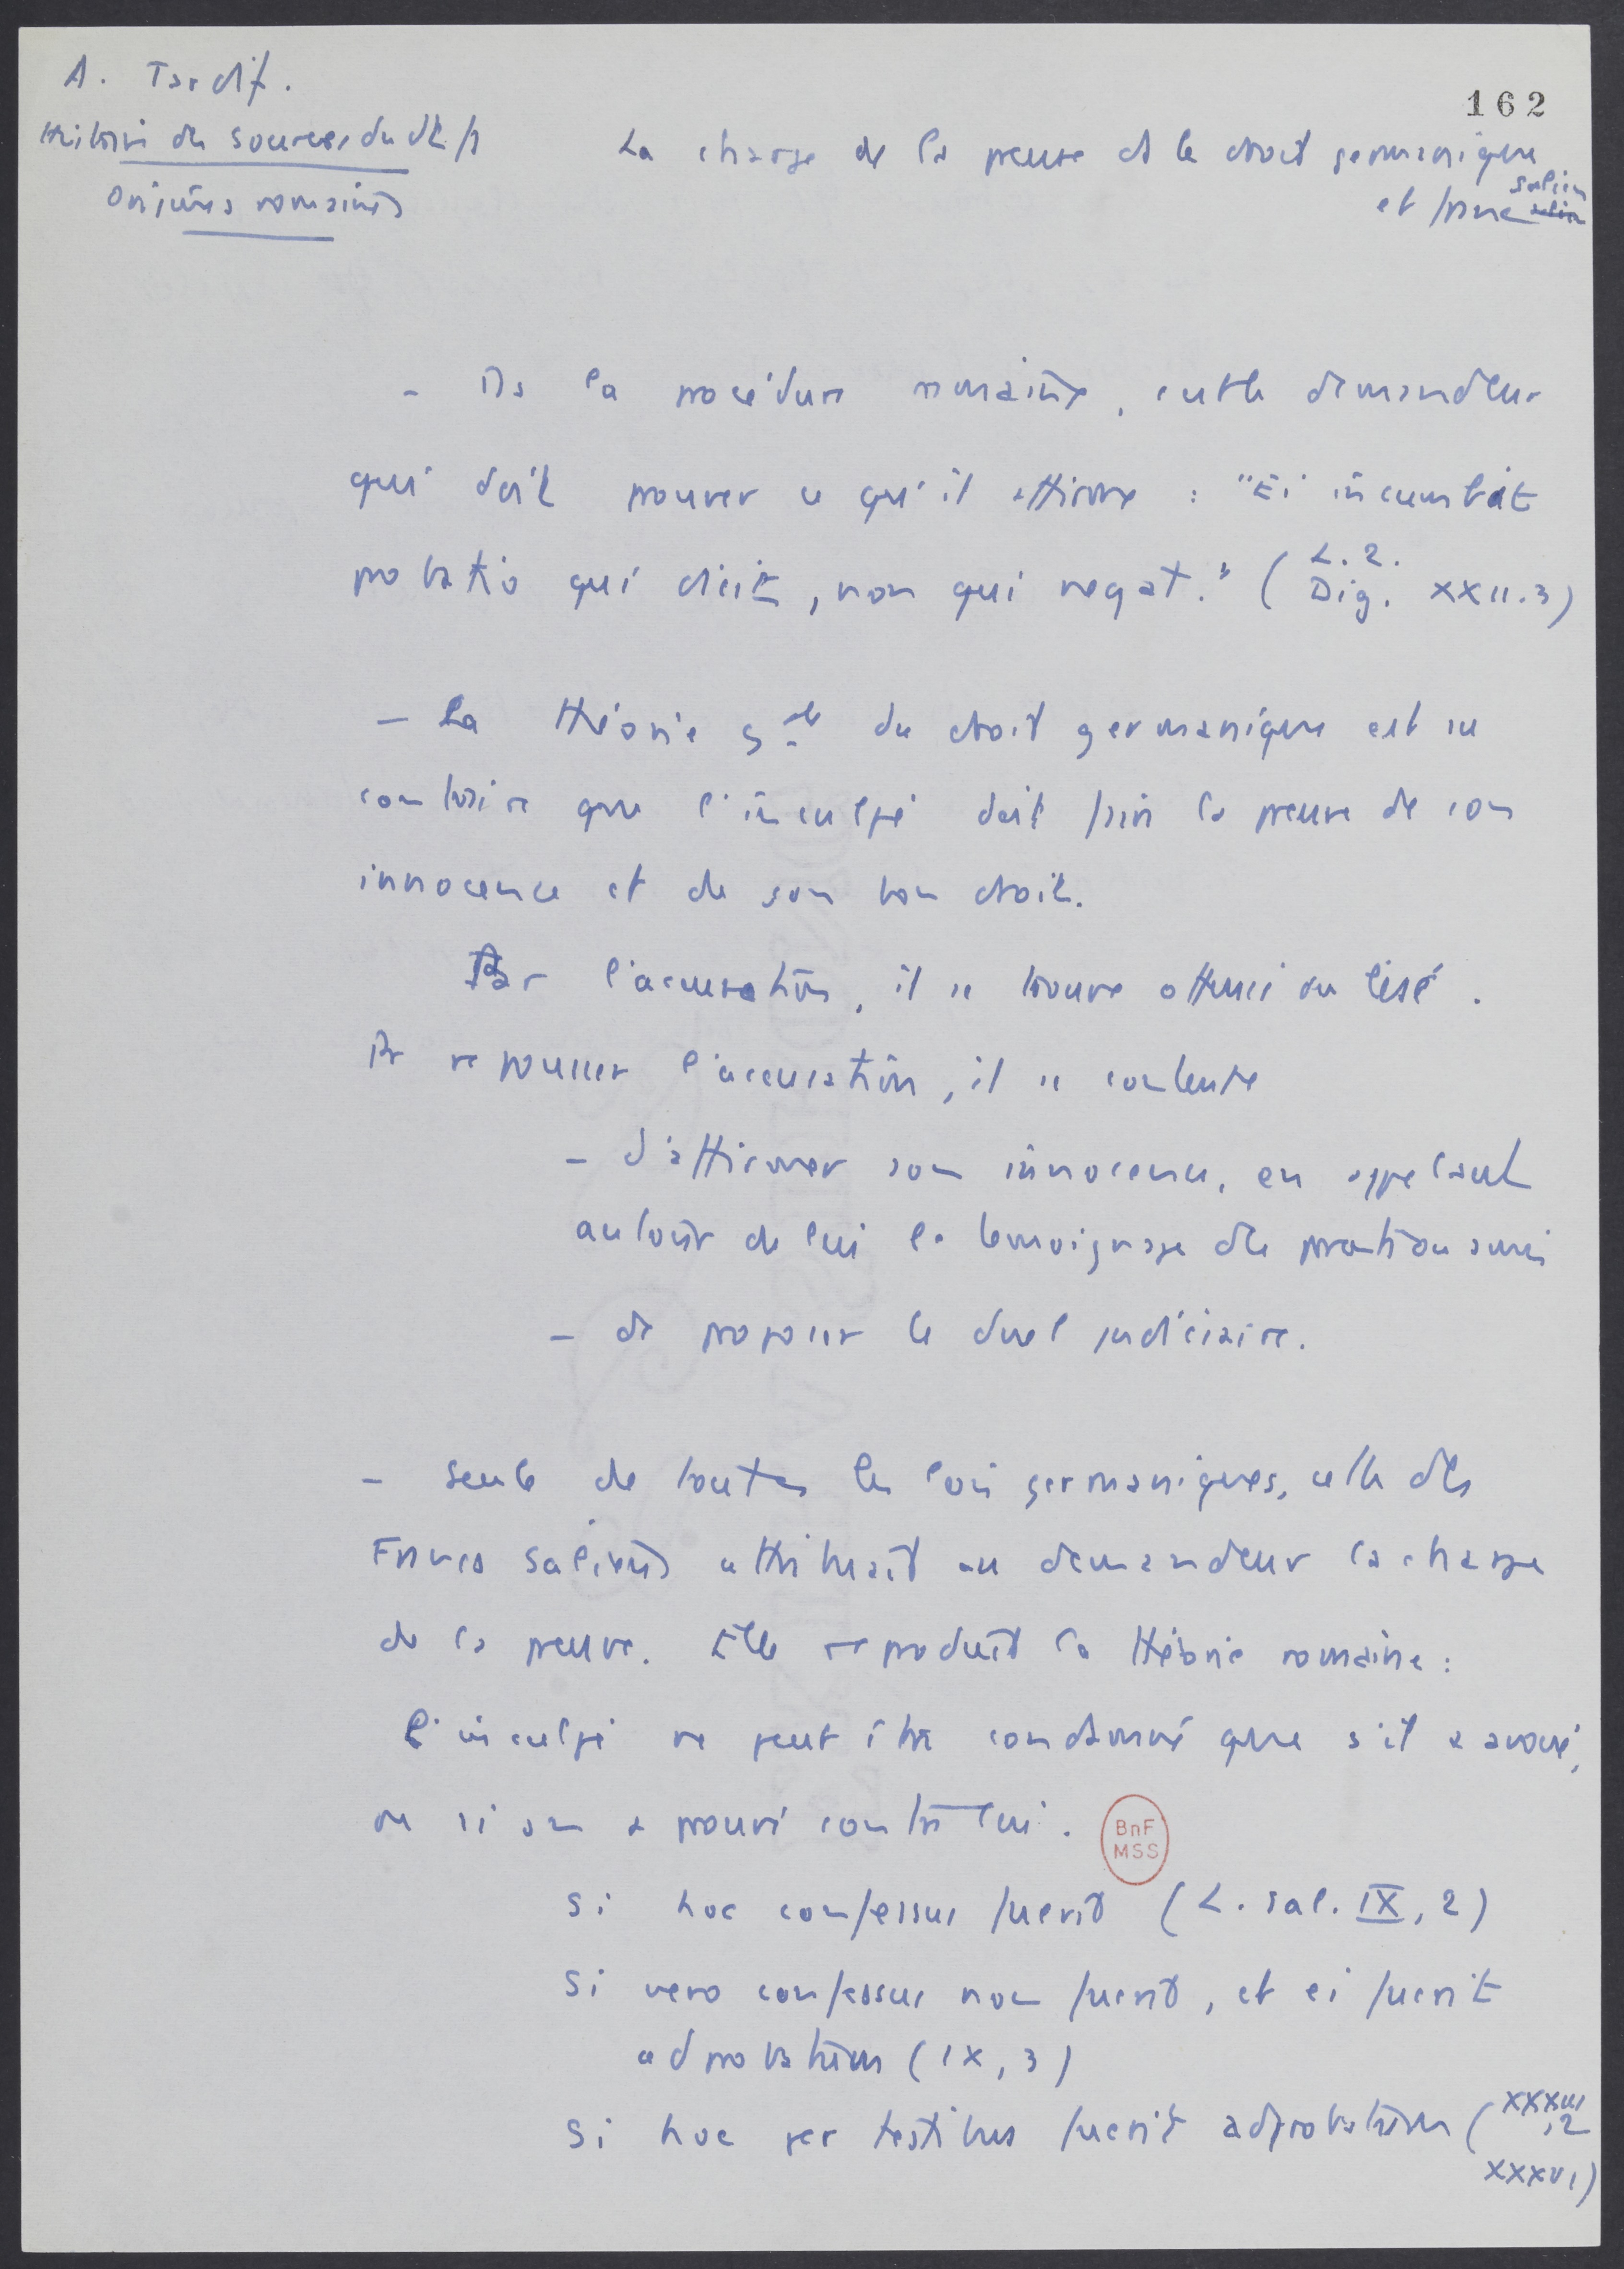 A. Tardif.
162
Histoire des sources du dt. fr
Origines romaines
La charge de la preuve ds le droit germanique
et franc salien
- Ds la procédure romaine, c'est le demandeur
qui doit prouver ce qu'il affirme : "Ei incumbit
probatio qui dicit, non qui negat." ( L. 2. Dig. XXII.3)
- La théorie gale du droit germanique est au
contraire que l'inculpé doit faire la preuve de son
innocence et de son bon droit.
Par l'accusation, il se trouve offensé ou lésé.
Pr repousser l'accusation, il se contente
- d'affirmer son innocence, en appelant
autour de lui le témoignage de
- de proposer le duel judiciaire.
- Seule de toutes les lois germaniques, celle des
Francs Saliens attribuait au demandeur la charge
de la preuve. Elle reproduit la théorie romaine :
l'inculpé ne peut être condamné que s'il a avoué,
ou si on a prouvé contre lui.
BnF
MSS
Si hoc confessus fuerit (L. Sal. IX, 2)
Si vero confessus non fuerit, et ei fuerit
adprobatum (IX, 3)
Si hoc per testibus fuerit adprobatum (
,2
XXXVI)